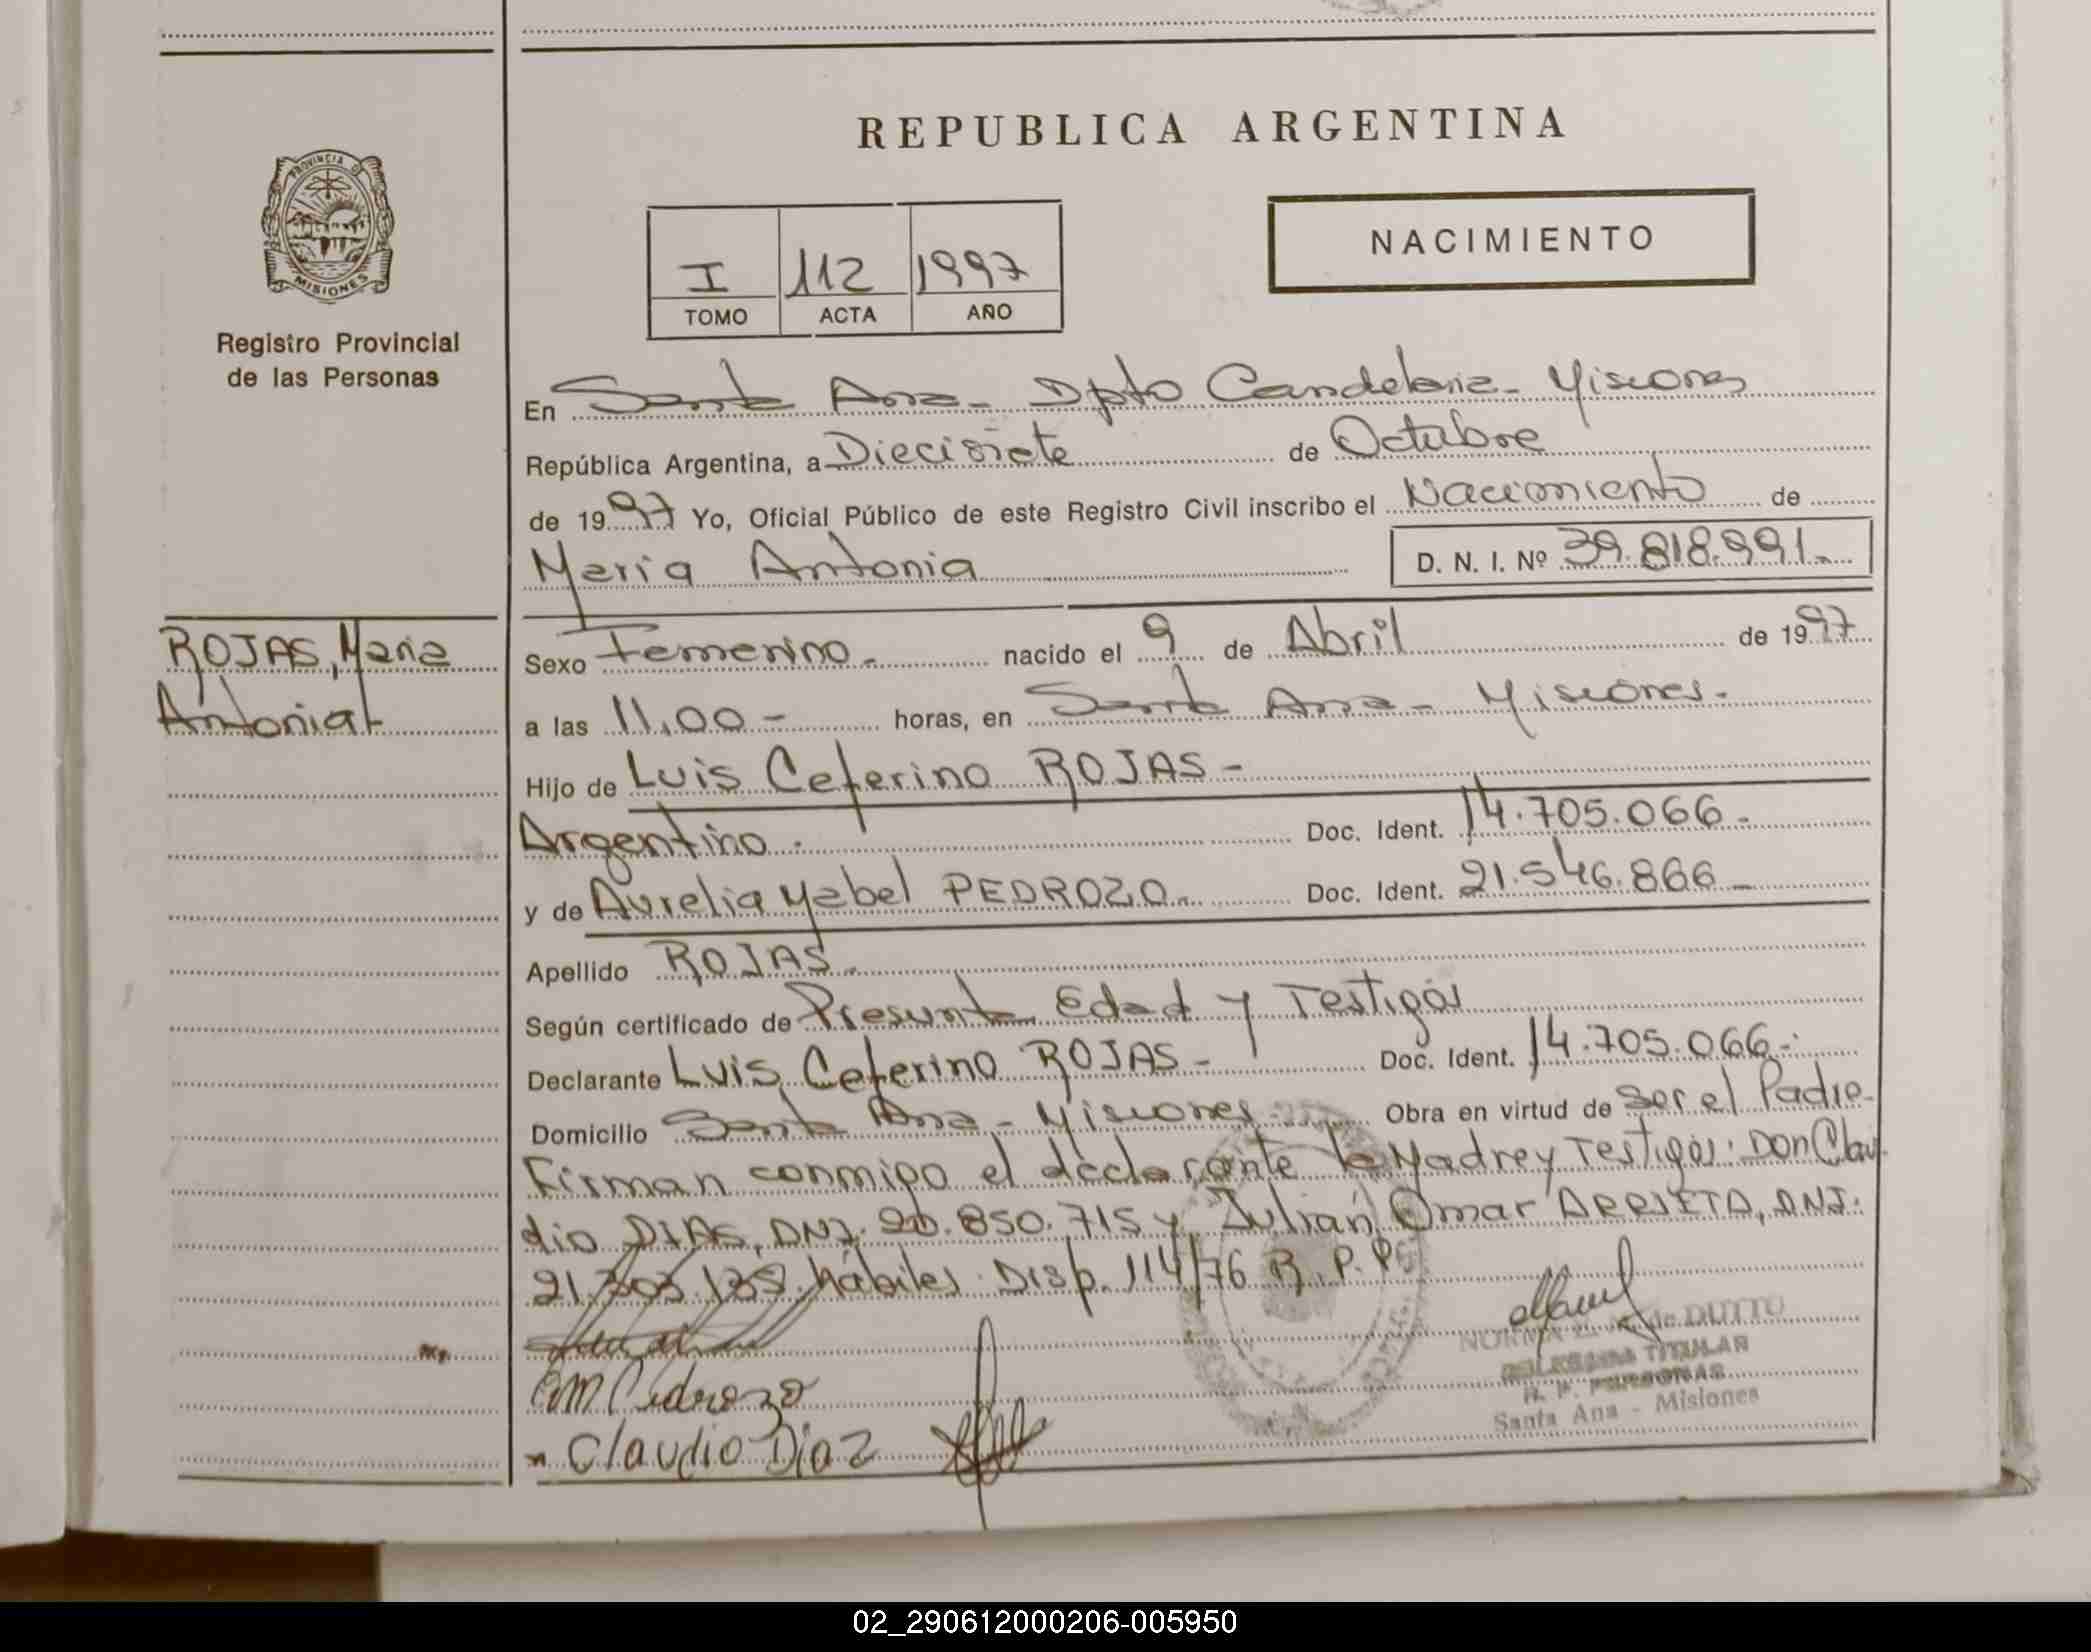 REPUBLICA ARGENTINA
PROVINCIA DE
MISIONES
Registro Provincial
de las Personas
NACIMIENTO
I 112 1997
TOMO ACTA AÑO
En Santa Ana - Dpto Candelaria - Misiones
República Argentina, a Diecisiete de Octubre
de 1997 Yo, Oficial Público de este Registro Civil inscribo el Nacimiento de
Maria Antonia D. N. I. Nº 39.818.991.-
ROJAS, Maria
Antonia
Sexo Femenino.- nacido el 9 de Abril de 1997
a las 11,00 - horas, en Santa Ana - Misiones.-
Hijo de Luis Ceferino ROJAS -
Argentino . Doc. Ident. 14.705.066 -
y de Aurelia Ysabel PEDROZO Doc. Ident. 21.546.866 -
Apellido ROJAS.
Según certificado de Presunta Edad y Testigos
Declarante Luis Ceferino ROJAS - Doc. Ident. 14.705.066 -
Domicilio Santa Ana - Misiones Obra en virtud de Ser el Padre -
Firman conmigo el declarante la Madre y Testigos: Don Clau
dio DIAS, DNI. 20.850.715 y Julián Omar ARRIETA, DNI.
21.303.139. hábiles. Disp. 114/76 R. P. P.
NORMA de DUTTO
DELEGADA TITULAR
R. P. PERSONAS
Santa Ana - Misiones
Pedrozo
Claudio Diaz
02_290612000206-005950